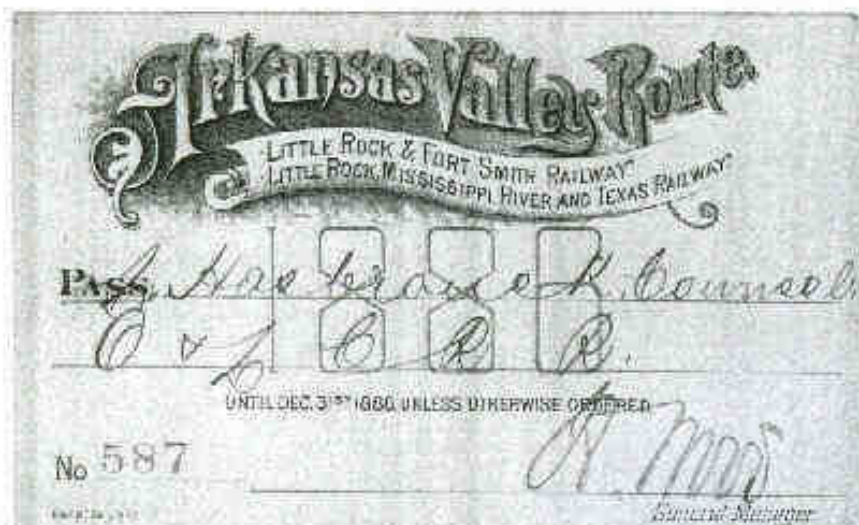 Arkansas Valley Route.
LITTLE ROCK & FORT SMITH RAILWAY
LITTLE ROCK, MISSISSIPPI RIVER AND TEXAS RAILWAY
PASS J. Hasbrouck, Counsel.
O & L C R R.
UNTIL DEC. 31ST 1886 UNLESS OTHERWISE ORDERED
No 587
General Manager